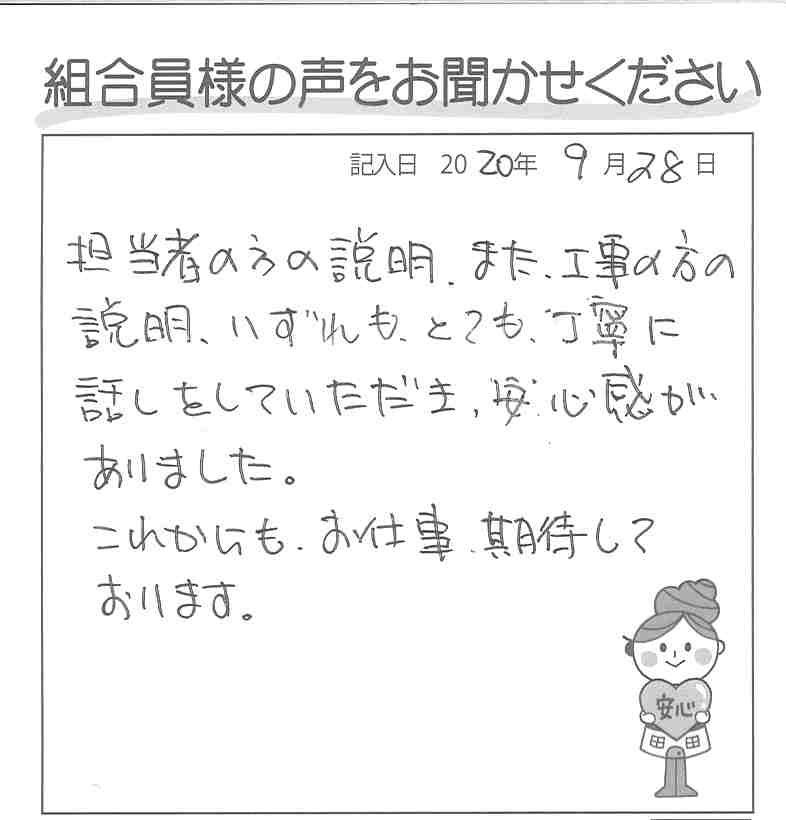 組合員様の声をお聞かせください
記入日 2020年 9月28日
担当者の方の説明、また、工事の方の
説明、いずれも、とても、丁寧に
話しをしていただき、安心感が
ありました。
これからも、お仕事、期待して
おります。
安心